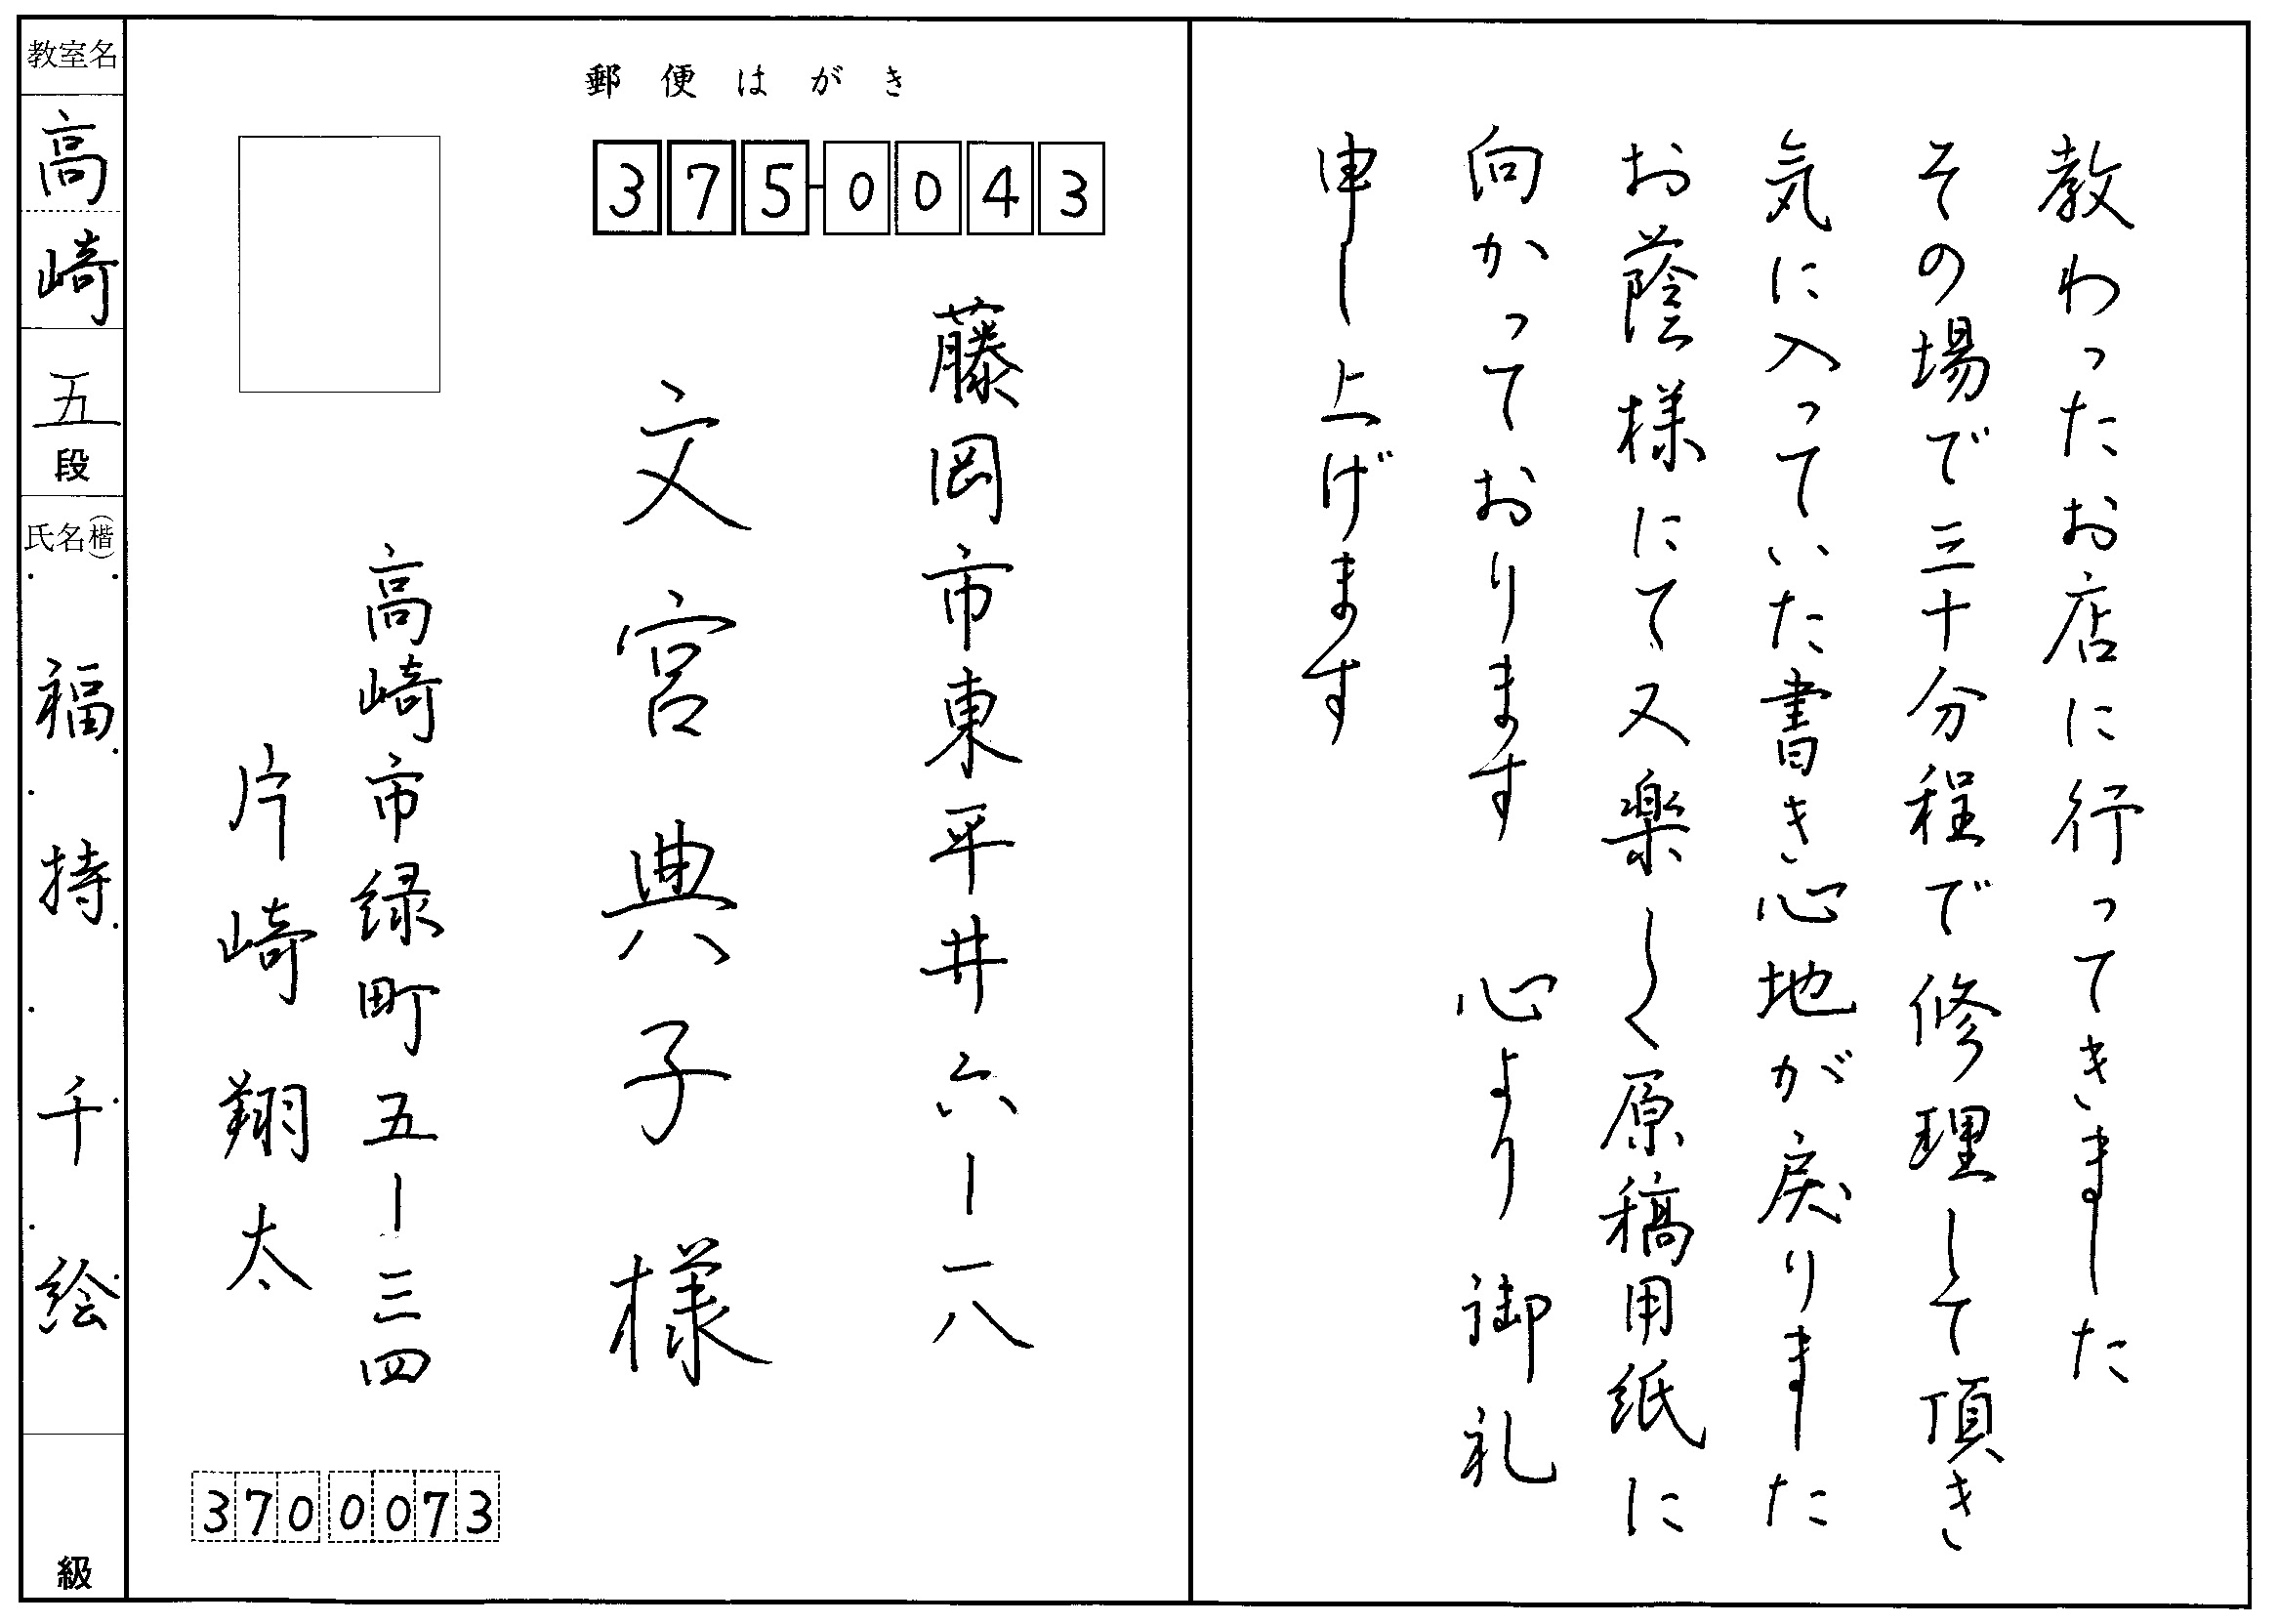 教わったお店に行ってきました
その場で三十分程で修理して頂き
気に入っていた書き心地が戻りました
お蔭様にて又楽しく原稿用紙に
向かっております　心より御礼
申し上げます
郵便はがき
375-0043
藤岡市東平井六ー一八
文宮典子様
高崎市緑町五ー三四
片崎翔太
3700073
教室名
高崎
五段
氏名(楷)
福持千絵
級